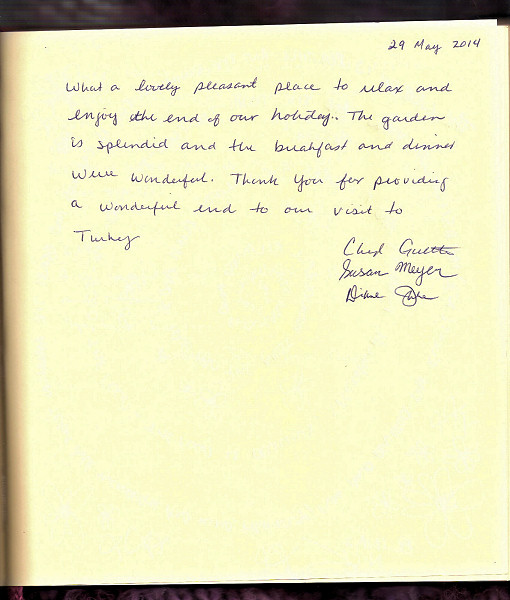 29 May 2014
What a lovely pleasant place to relax and
enjoy the end of our holiday. The garden
is splendid and the breakfast and dinner
were wonderful. Thank You for providing
a wonderful end to our visit to
Turkey
Susan Meyer
Diane